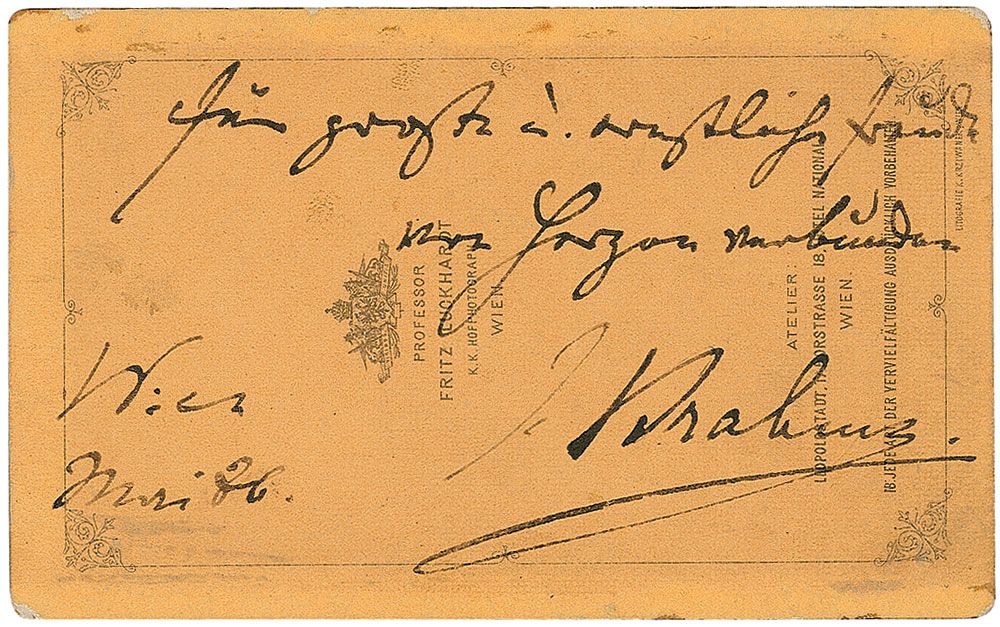 Für große u. ernstliche Freude
von Herzen verbunden
J Brahms.
Wien
Mai 86.
PROFESSOR
FRITZ LUCKHARDT
K.K. HOFPHOTOGRAPH
WIEN
ATELIER:
LEOPOLDSTADT, TABORSTRASSE 18, HOTEL NATIONAL
WIEN.
JEDE ART DER VERVIELFÄLTIGUNG AUSDRÜCKLICH VORBEHALTEN
LITOGRAFIE K. KRZIWANEK